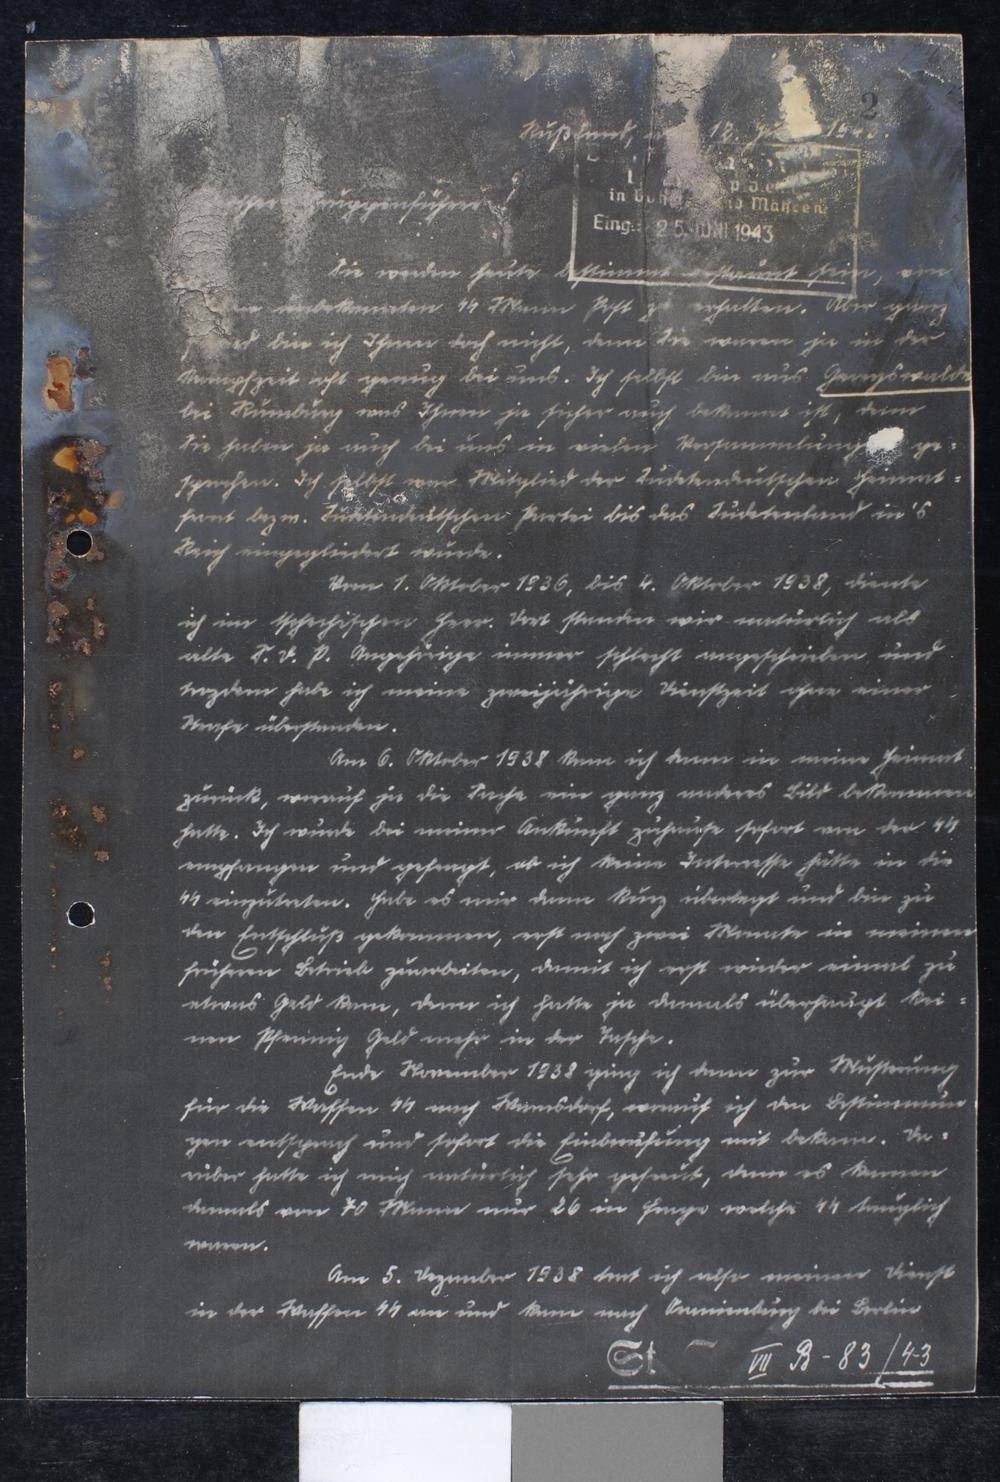 2
Rußland, 12. 194
in Böh und Mähren
Eing.: 25. JUNI 1943
gruppenführer!
Sie werden heute bestimmt erstaunt sein, von
unbekannten SS Mann Post zu erhalten. Aber ganz
bin ich Ihnen doch nicht, denn Sie waren ja in der
Kampfzeit oft genug bei uns. Ich selbst bin aus Georgswalde
bei Rumburg was Ihnen ja sicher auch bekannt ist, denn
Sie haben ja auch bei uns in vielen Versammlungen ge=
sprochen. Ich selbst war Mitglied der Sudetendeutschen Heimat=
front bezw. Sudetendeutschen Partei bis das Sudetenland in's
Reich eingegliedert wurde.
Vom 1. Oktober 1936, bis 4. Oktober 1938, diente
ich im tschechischen Heer. Dort standen wir natürlich als
alte S. d. P. Angehörige immer schlecht angeschrieben und
trozdem habe ich meine zweijährige Dienstzeit ohne einer
Strafe überstanden.
Am 6. Oktober 1938 kam ich dann in meine Heimat
zurück, worauf ja die Sache ein ganz anderes Bild bekommen
hatte. Ich wurde bei meiner Ankunft zuhause sofort von der SS
empfangen und gefragt, ob ich keine Interesse hätte in die
SS einzutreten. Habe es mir dann kurz überlegt und bin zu
den Entschluß gekommen, erst noch zwei Monate in meinen
frühern Betrieb zuarbeiten, damit ich erst wieder einmal zu
etwas Geld kam, denn ich hatte ja damals überhaupt kei=
nen Pfennig Geld mehr in der Tasche.
Ende November 1938 ging ich dann zur Musterung
für die Waffen SS nach Warnsdorf, worauf ich den Bestimmun
gen entsprach und sofort die Einberufung mit bekam. Da=
rüber hatte ich mich natürlich sehr gefreut, denn es kamen
damals von 70 Mann nur 26 in Frage welche SS tauglich
waren.
Am 5. Dezember 1938 trat ich also meinen Dienst
in der Waffen SS an und kam nach Oranienburg bei Berlin
St - VII B - 83 / 43